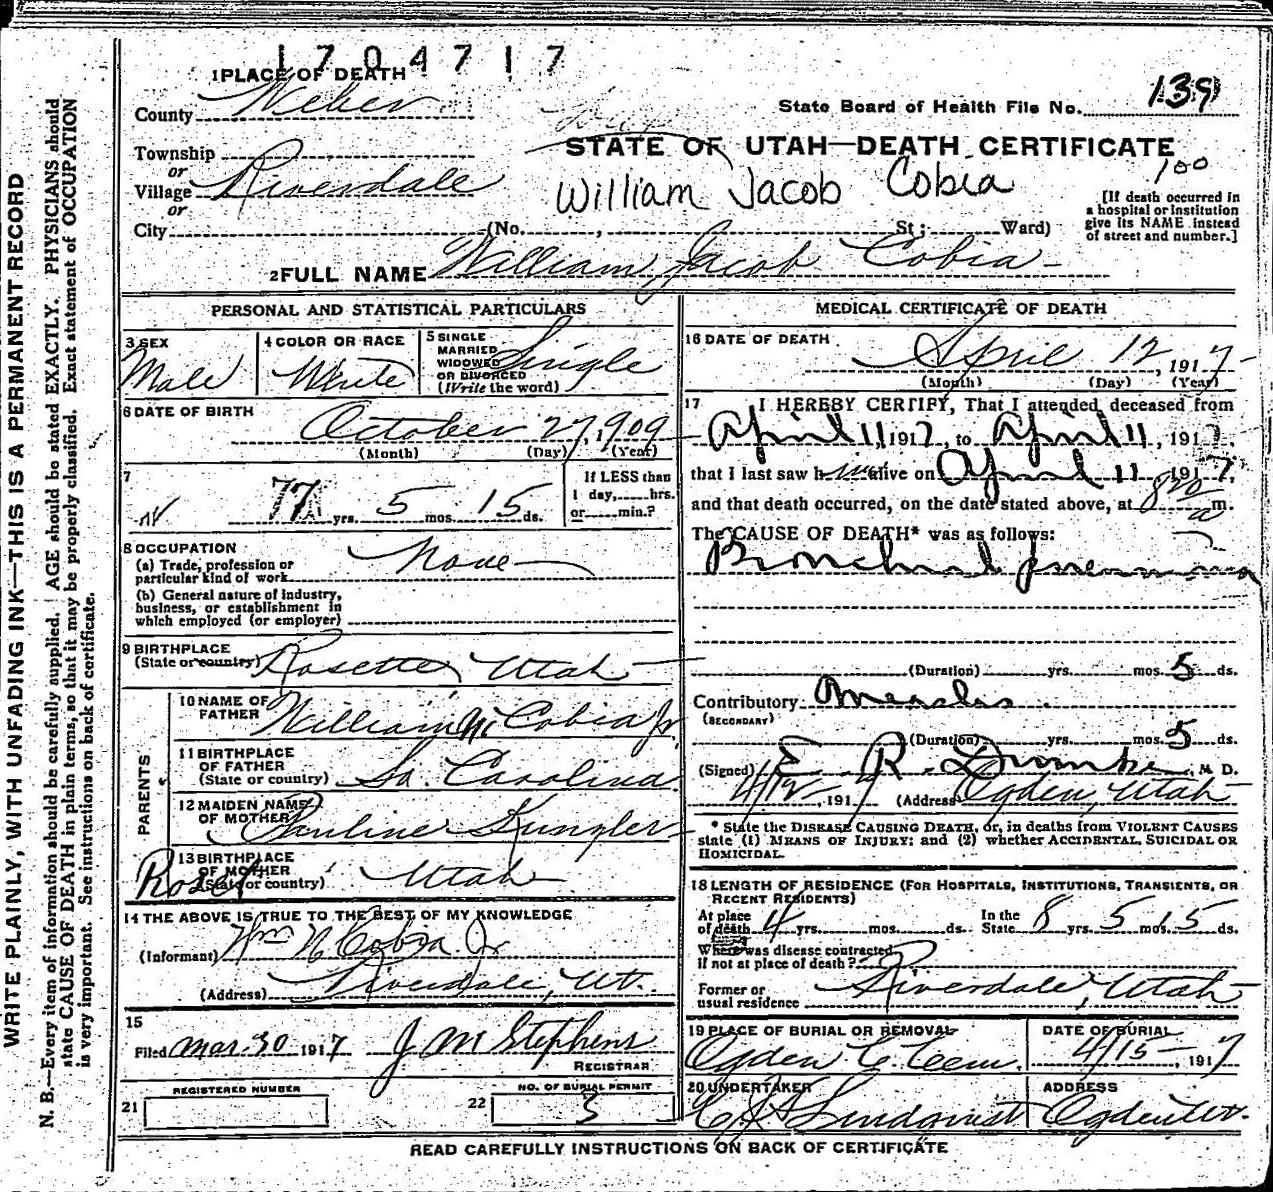 1704717
1 PLACE OF DEATH
County Weber
State Board of Health File No. 139
Township
or
Village Riverdale
or
City
STATE OF UTAH—DEATH CERTIFICATE
100
William Jacob Cobia
[If death occurred in
a hospital or institution
give its NAME instead
of street and number.]
(No. , St; Ward)
2 FULL NAME William Jacob Cobia
PERSONAL AND STATISTICAL PARTICULARS
3 SEX
Male
4 COLOR OR RACE
White
5 SINGLE
MARRIED
WIDOWED
OR DIVORCED
(Write the word)
Single
6 DATE OF BIRTH
October 27, 1909
(Month) (Day) (Year)
7
77 yrs. 5 mos. 15 ds.
If LESS than
1 day, hrs.
or min.?
8 OCCUPATION
(a) Trade, profession or
particular kind of work None
(b) General nature of industry,
business, or establishment in
which employed (or employer)
9 BIRTHPLACE
(State or country) Rosette, Utah
PARENTS
10 NAME OF
FATHER William N Cobia Jr.
11 BIRTHPLACE
OF FATHER
(State or country) So. Carolina
12 MAIDEN NAME
OF MOTHER Pauline Kungler
13 BIRTHPLACE
OF MOTHER
(State or country) Utah
14 THE ABOVE IS TRUE TO THE BEST OF MY KNOWLEDGE
(Informant) Wm N Cobia Jr
(Address) Riverdale, Ut.
15
Filed Mar. 30 1917 J M Stephens
REGISTRAR
REGISTERED NUMBER
21
NO. OF BURIAL PERMIT
22 3
MEDICAL CERTIFICATE OF DEATH
16 DATE OF DEATH
April 12, 1917
(Month) (Day) (Year)
17 I HEREBY CERTIFY, That I attended deceased from
April 11 1917, to April 11, 1917,
that I last saw him alive on April 11 1917,
and that death occurred, on the date stated above, at 8 m.
The CAUSE OF DEATH* was as follows:
Bronchial pneumonia
(Duration) yrs. mos. 5 ds.
Contributory Measles
(SECONDARY)
(Duration) yrs. mos. 5 ds.
(Signed) E. R. Dumke, M D.
4/12, 1917 (Address) Ogden, Utah
* State the DISEASE CAUSING DEATH, or, in deaths from VIOLENT CAUSES
state (1) MEANS OF INJURY; and (2) whether ACCIDENTAL, SUICIDAL OR
HOMICIDAL.
18 LENGTH OF RESIDENCE (FOR HOSPITALS, INSTITUTIONS, TRANSIENTS, OR
RECENT RESIDENTS)
At place
of death 4 yrs. mos. ds.
In the
State 8 yrs. 5 mos. 15 ds.
Where was disease contracted
if not at place of death?
Former or
usual residence Riverdale, Utah
19 PLACE OF BURIAL OR REMOVAL
Ogden C. Cem.
DATE OF BURIAL
4/15 1917
20 UNDERTAKER
Lindquist
ADDRESS
Ogden Ut.
READ CAREFULLY INSTRUCTIONS ON BACK OF CERTIFICATE
WRITE PLAINLY, WITH UNFADING INK—THIS IS A PERMANENT RECORD
N. B.—Every item of information should be carefully supplied. AGE should be stated EXACTLY. PHYSICIANS should
state CAUSE OF DEATH in plain terms, so that it may be properly classified. Exact statement of OCCUPATION
is very important. See instructions on back of certificate.